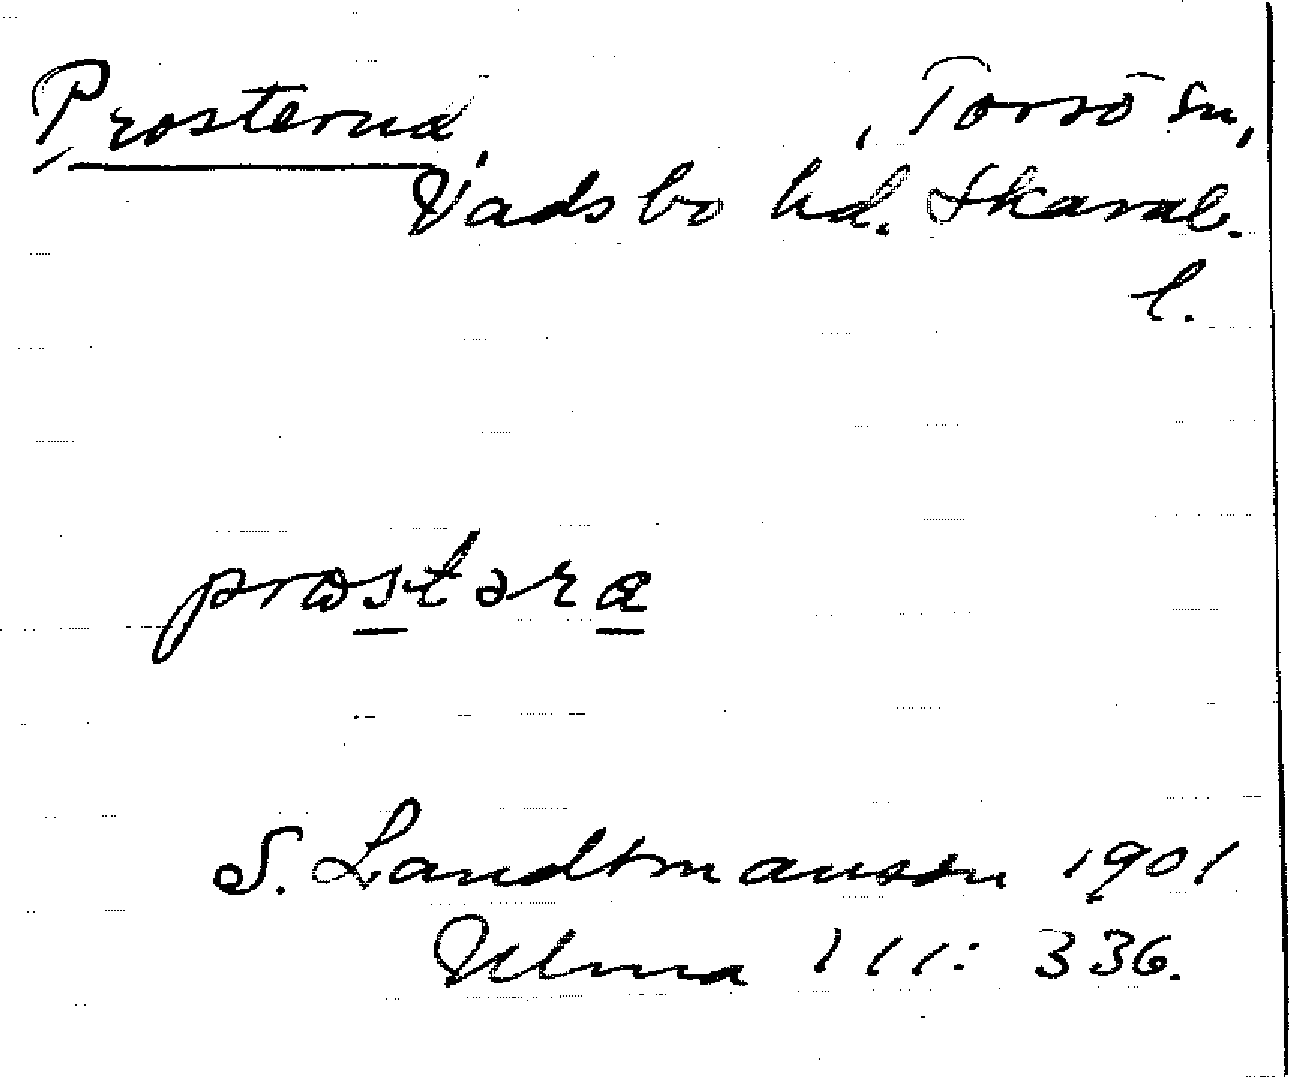 Prosterna, Torsö sn,
Vadsbo hd. Skarab.
l.
prɷstəra
S. Landtmanson 1901
Ulma 111: 336.